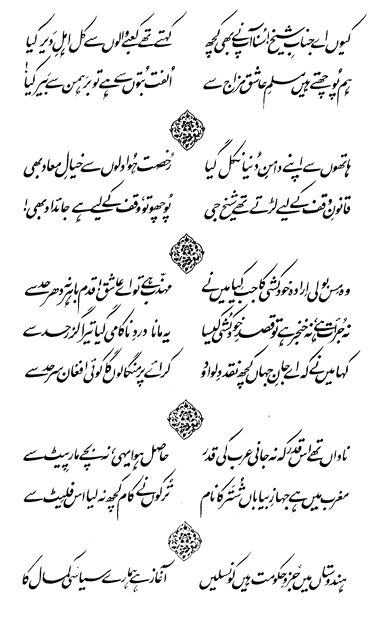 کیوں اے جنابِ شیخ! سُنا آپ نے بھی کچھ کہتے تھے کعبے والوں سے کل اہلِ دَیر کیا
ہم پُوچھتے ہیں مسلمِ عاشق مزاج سے اُلفت بُتوں سے ہے تو برہمن سے بَیر کیا!
ہاتھوں سے اپنے دامنِ دُنیا نکل گیا رُخصت ہُوا دلوں سے خیالِ معاد بھی
قانونِ وقف کے لیے لڑتے تھے شیخ جی پُوچھو تو، وقف کے لیے ہے جائداد بھی!
وہ مِس بولی اِرادہ خودکشی کا جب کِیا میں نے مہذّب ہے تُو اے عاشق! قدم باہر نہ دھر حد سے
نہ جُرأت ہے، نہ خنجر ہے تو قصدِ خودکُشی کیسا یہ مانا دردِ ناکامی گیا تیرا گزر حد سے
کہا میں نے کہ اے جانِ جہاں کچھ نقد دِلوا دو کرائے پر منگالوں گا کوئی افغان سرحد سے
ناداں تھے اس قدر کہ نہ جانی عرب کی قدر حاصل ہُوا یہی، نہ بچے مار پِیٹ سے
مغرب میں ہے جہازِ بیاباں شُتر کا نام تُرکوں نے کام کچھ نہ لیا اس فلِیٹ سے
ہندوستاں میں جزوِ حکومت ہیں کونسلیں آغاز ہے ہمارے سیاسی کمال کا